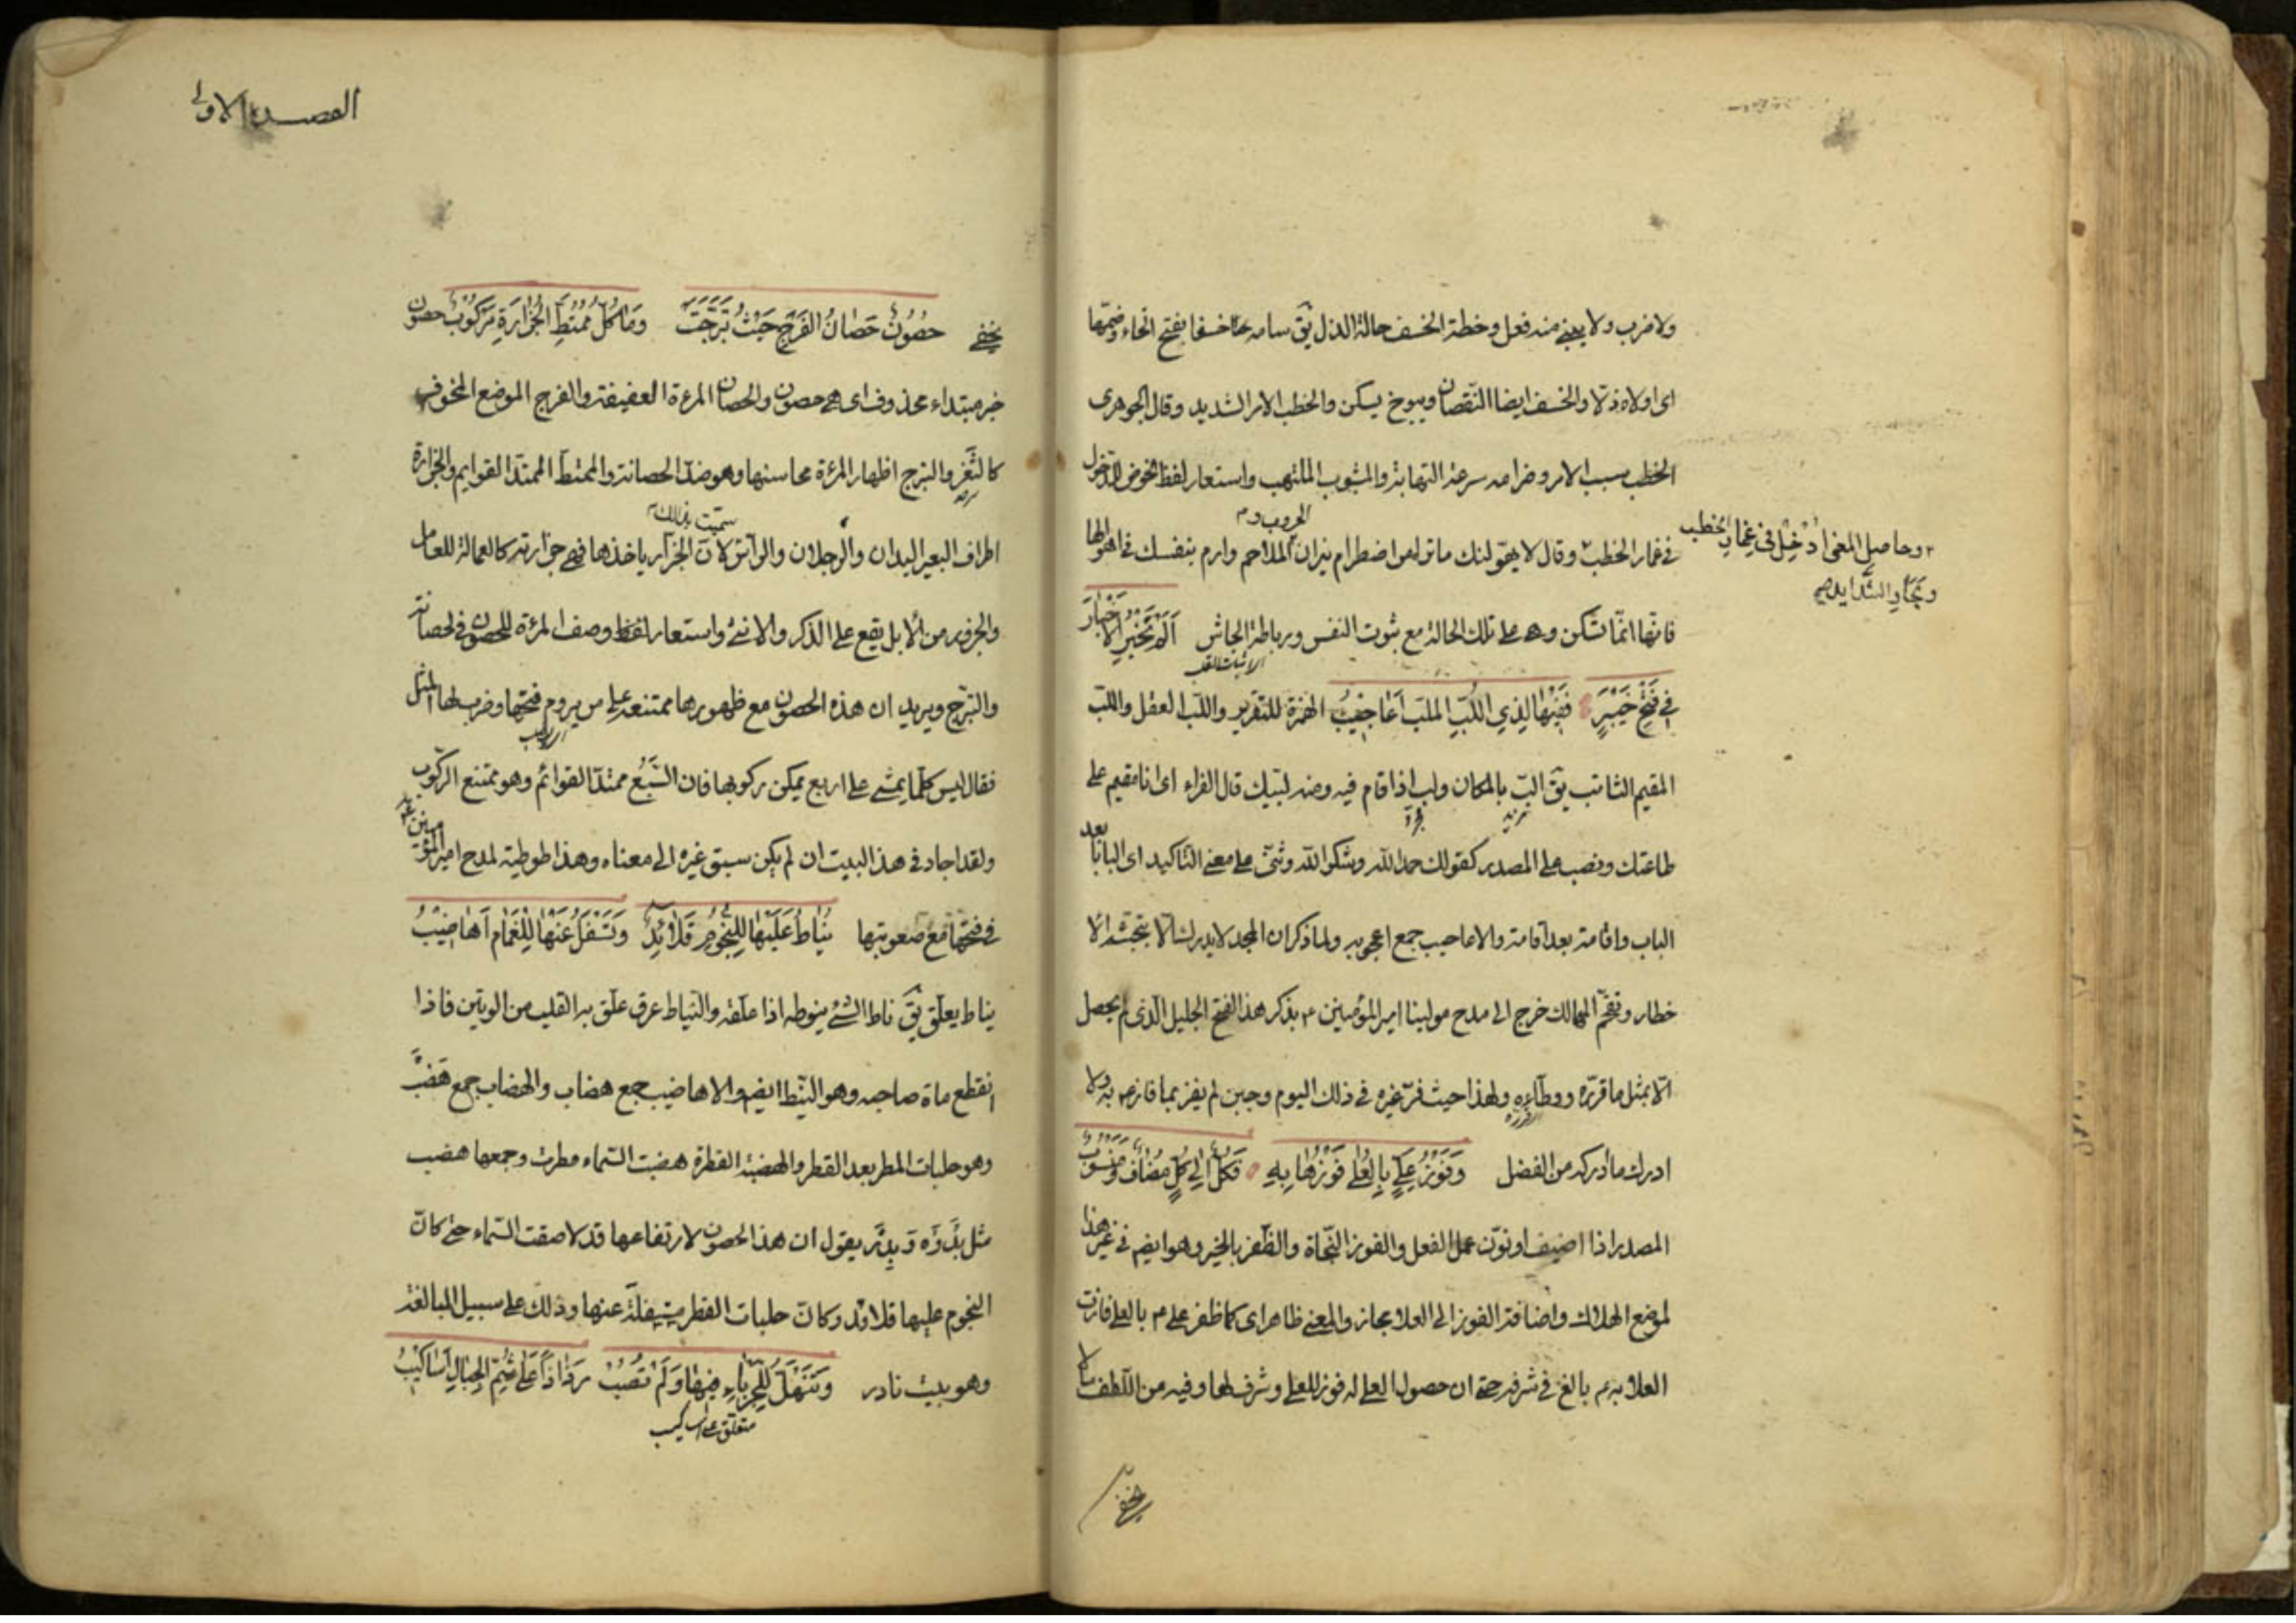 ولا ضرب ولا يبنى منه فعل وخطة الخسف حالة الذل يق سامه خسفا بفتح الخاء وضمها
اى اولاه ذلا والخسف ايضا النقصان ويبوخ يسكن والخطب الامر الشديد وقال الجوهرى
الخطب سبب الامر وضرامه سرعة التهابه والمشوب الملتهب واستعار لفظ الخوض للدخول
الحروب و م
فى غمار الخطب وقال لا يهولنك ما تراه من اضطرام نيران الملاحم وارم بنفسك فى اهوالها
٢ وحاصل المعنى ادخل فى غمار الخطب
وبحار الشدايد صح
فانها انما تسكن وهى على تلك الحالة مع ثبوت النفس ورباطة الجاش اَلَمْ تُخْبَرِ الْاَخْبَارَ
فِى فَتْحِ خَيْبَرٍ فَفِيْهَا لِذِى اللُّبِّ الْمُلِبِّ اَعَاجِيْبُ الهمزة للتقرير واللب العقل واللب
المقيم الثابت يق الب بالمكان ولب اذا قام فيه ومنه لبيك قال الفراء اى انا مقيم على
طاعتك ونصب على المصدر كقولك حمدا لله وشكرا لله وثنى على معنى التاكيد اى البابا بعد
الباب واقامة بعد اقامة والاعاجيب جمع اعجوبه ولما ذكر ان المجد لا يدرك الا بتجشم الا
خطار وتقحم المهالك خرج الى مدح مولينا امير المؤمنين ع بذكر هذا الفتح الجليل الذى لم يحصل
الا بمثل ما قرره ووطاءه ولهذا حيث فر غيره فى ذلك اليوم وجبن لم يفز بما فاز ع به ولا
ادرك ما ادركه من الفضل وَفَوْزُ عَلِىٍّ بِالْعُلٰى فَوْزُهَا بِهِ فَكُلٌّ اِلٰى كُلٍّ مُضَافٌ وَمَنْسُوْبٌ
المصدر اذا اضيف او نون عمل الفعل والفوز النجاة والظفر بالخير وهو ايضم فى غير هذا
لموضع الهلاك واضافة الفوز الى العلا مجاز والمعنى ظاهر اى كما ظفر على م بالعلى فازت
العلا به ع بالغ فى شرفه حتى ان حصول العلى له فوز للعلى وشرف لها وفيه من اللطف ما لا
يخفى
القصيدة الاولى
يخفى حُصُوْنٌ حَصَانُ الْفَرْجِ حَيْثُ تَبَرَّجَتْ وَمَا كُلُّ مُمْتَطِّ الْجُزَارَةِ مَرْكُوْبٌ حصون
خبر مبتداء محذوف اى هى حصون والحصان المرءة العفيفة والفرج الموضع المخوف
كالثغر والتبرج اظهار المرءة محاسنها وهو ضد الحصانة والممتط الممتد القوايم والجزارة
سميت بذلك
اطراف البعير اليدان والرجلان والراس لان الجزار ياخذها فهى جزارته كالعمالة للعامل
والجزور من الابل يقع على الذكر والانثى واستعار لفظ وصف المرءة للحصون فى الحصانة
والتبرج ويريد ان هذه الحصون مع ظهورها ممتنعة على من يروم فتحها وضرب لها المثل
فقال ليس كلما يمشى على اربع يمكن ركوبها فان السبع ممتد القوائم وهو ممتنع الركوب
ولقد اجاد فى هذا البيت ان لم يكن سبق غيره الى معناه وهذا طوطية لمدح امير المؤمنين
فى فتحها مع صعوبتها يُنَاطُ عَلَيْهَا لِلنُّجُوْمِ قَلَائِدٌ وَتَسْفُلُ عَنْهَا لِلْغَمَامِ اَهَاضِيْبُ
يناط يعلق يق ناط الشئ ينوطه اذا علقه والنياط عرق علق به القلب من الوتين فاذا
انقطع مات صاحبه وهو النيط ايضم والاهاضيب جمع هضاب والهضاب جمع هضب
وهو حلبات المطر بعد القطر والهضبة القطرة هضبت السماء مطرت وجمعها هضب
مثل بدره وبدر يقول ان هذا الحصون لارتفاعها قد لاصقت السماء حتى كان
النجوم عليها قلائد وكان حلبات القطر متسفلة عنها وذلك على سبيل المبالغة
وهو بيت نادر وَتَنْهَلُّ لِلْجِرْبَاءِ فِيْهَا وَلَمْ تُصِبْ رَذَاذًا عَلٰى شُمِّ الْجِبَالِ اَسَاكِيْبُ
متعلق على اساكيب